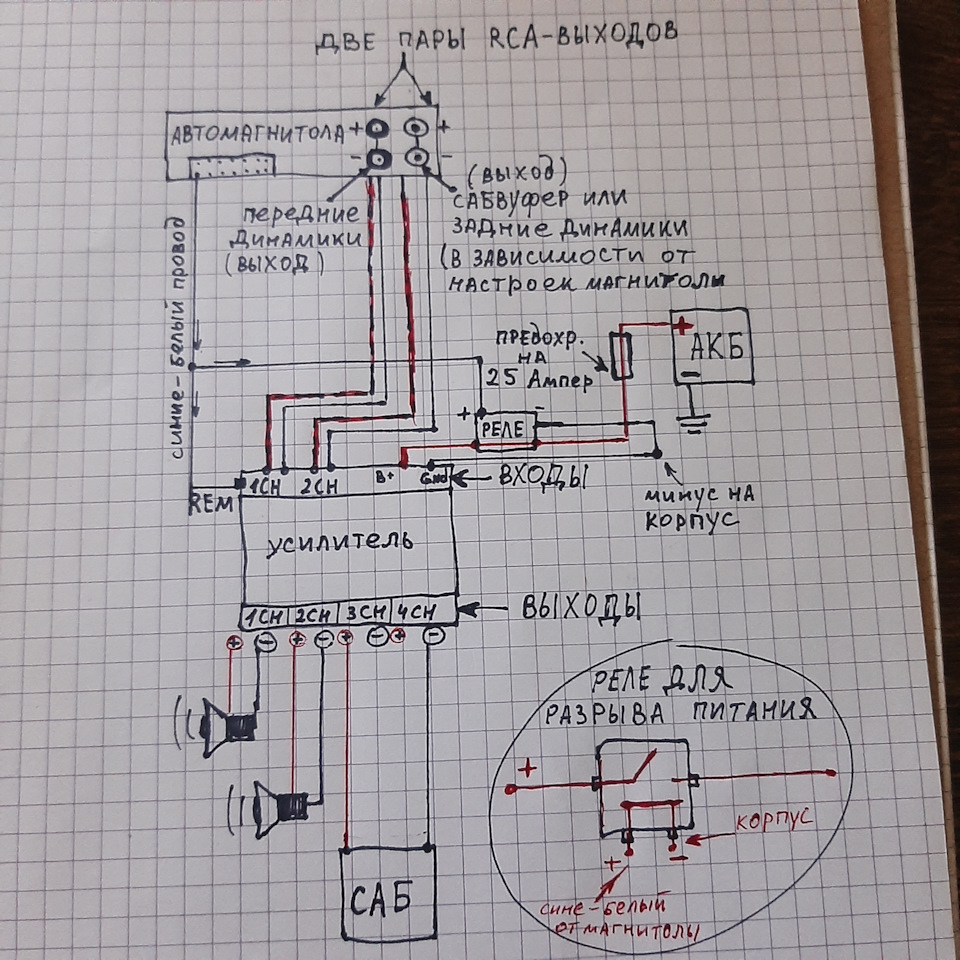 ДВЕ ПАРЫ RCA-ВЫХОДОВ
АВТОМАГНИТОЛА + +
- -
(ВЫХОД)
САБВУФЕР ИЛИ
ЗАДНИЕ ДИНАМИКИ
(В ЗАВИСИМОСТИ ОТ
НАСТРОЕК МАГНИТОЛЫ
ПЕРЕДНИЕ
ДИНАМИКИ
(ВЫХОД)
СИНИЕ-БЕЛЫЙ ПРОВОД
ПРЕДОХР.
НА
25 Ампер
+ АКБ -
+ РЕЛЕ -
REM 1CH 2CH B+ GND ВХОДЫ
МИНУС НА
КОРПУС
УСИЛИТЕЛЬ
1CH 2CH 3CH 4CH ВЫХОДЫ
+ - + - + - + -
САБ
РЕЛЕ ДЛЯ
РАЗРЫВА ПИТАНИЯ
+
КОРПУС
+ -
СИНЕ-БЕЛЫЙ
ОТ МАГНИТОЛЫ